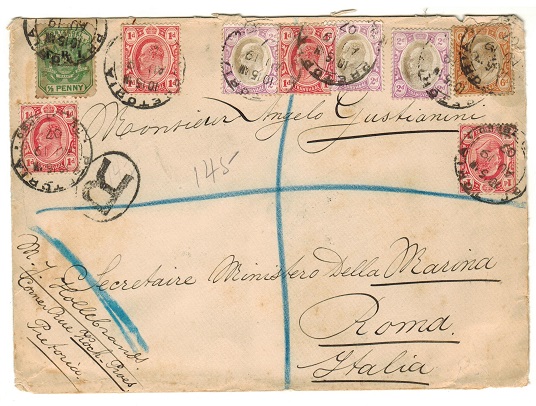 ½ PENNY
PRETORIA
R
145
Monsieur Angelo Gustianini
Secretaire Ministero Della Marina
Roma.
Italia
M. J. Hollebrands
Corner Rue Kock-Proes
Pretoria.